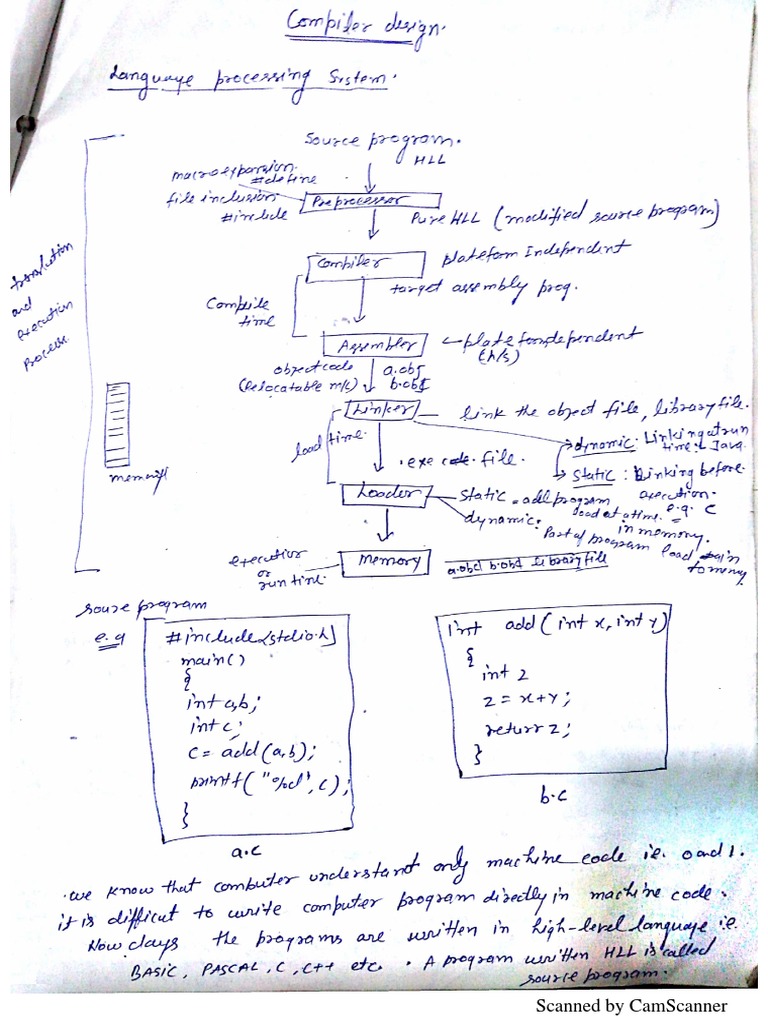 Compiler design.
Language processing System.
Source program.
HLL
macro expansion
#define
file inclusion
#include
Preprocessor
Pure HLL (modified source program)
Compiler
plateform Independent
target assembly prog.
Compile
time
translution
and
execution
Process.
Assembler
plateformdependent
(h/s)
object code
(relocatable m/c)
a.obj
b.obj
Linker
link the object file, library file.
load time.
dynamic. Linking at run
time: Java.
.exe code file.
Static : Linking before
execution.
e.g. C
memory
Loader
Static = add program
load at a time.
in memory.
dynamic: Part of program load in
to memory
execution
or
run time.
Memory
a.obd b.obd library file
sourse program
e.g
#include<stdio.h>
main()
{
int a,b;
int c;
c = add(a,b);
printf("%d", c);
}
a.c
int add(int x, int y)
{
int z
z = x+y;
return z;
}
b.c
.we know that computer understant only machine code ie. 0 and 1.
it is difficut to write computer program directly in machine code.
Now days the programs are written in high-level language i.e.
BASIC, PASCAL, C, C++ etc. A program written HLL is called
source program.
Scanned by CamScanner